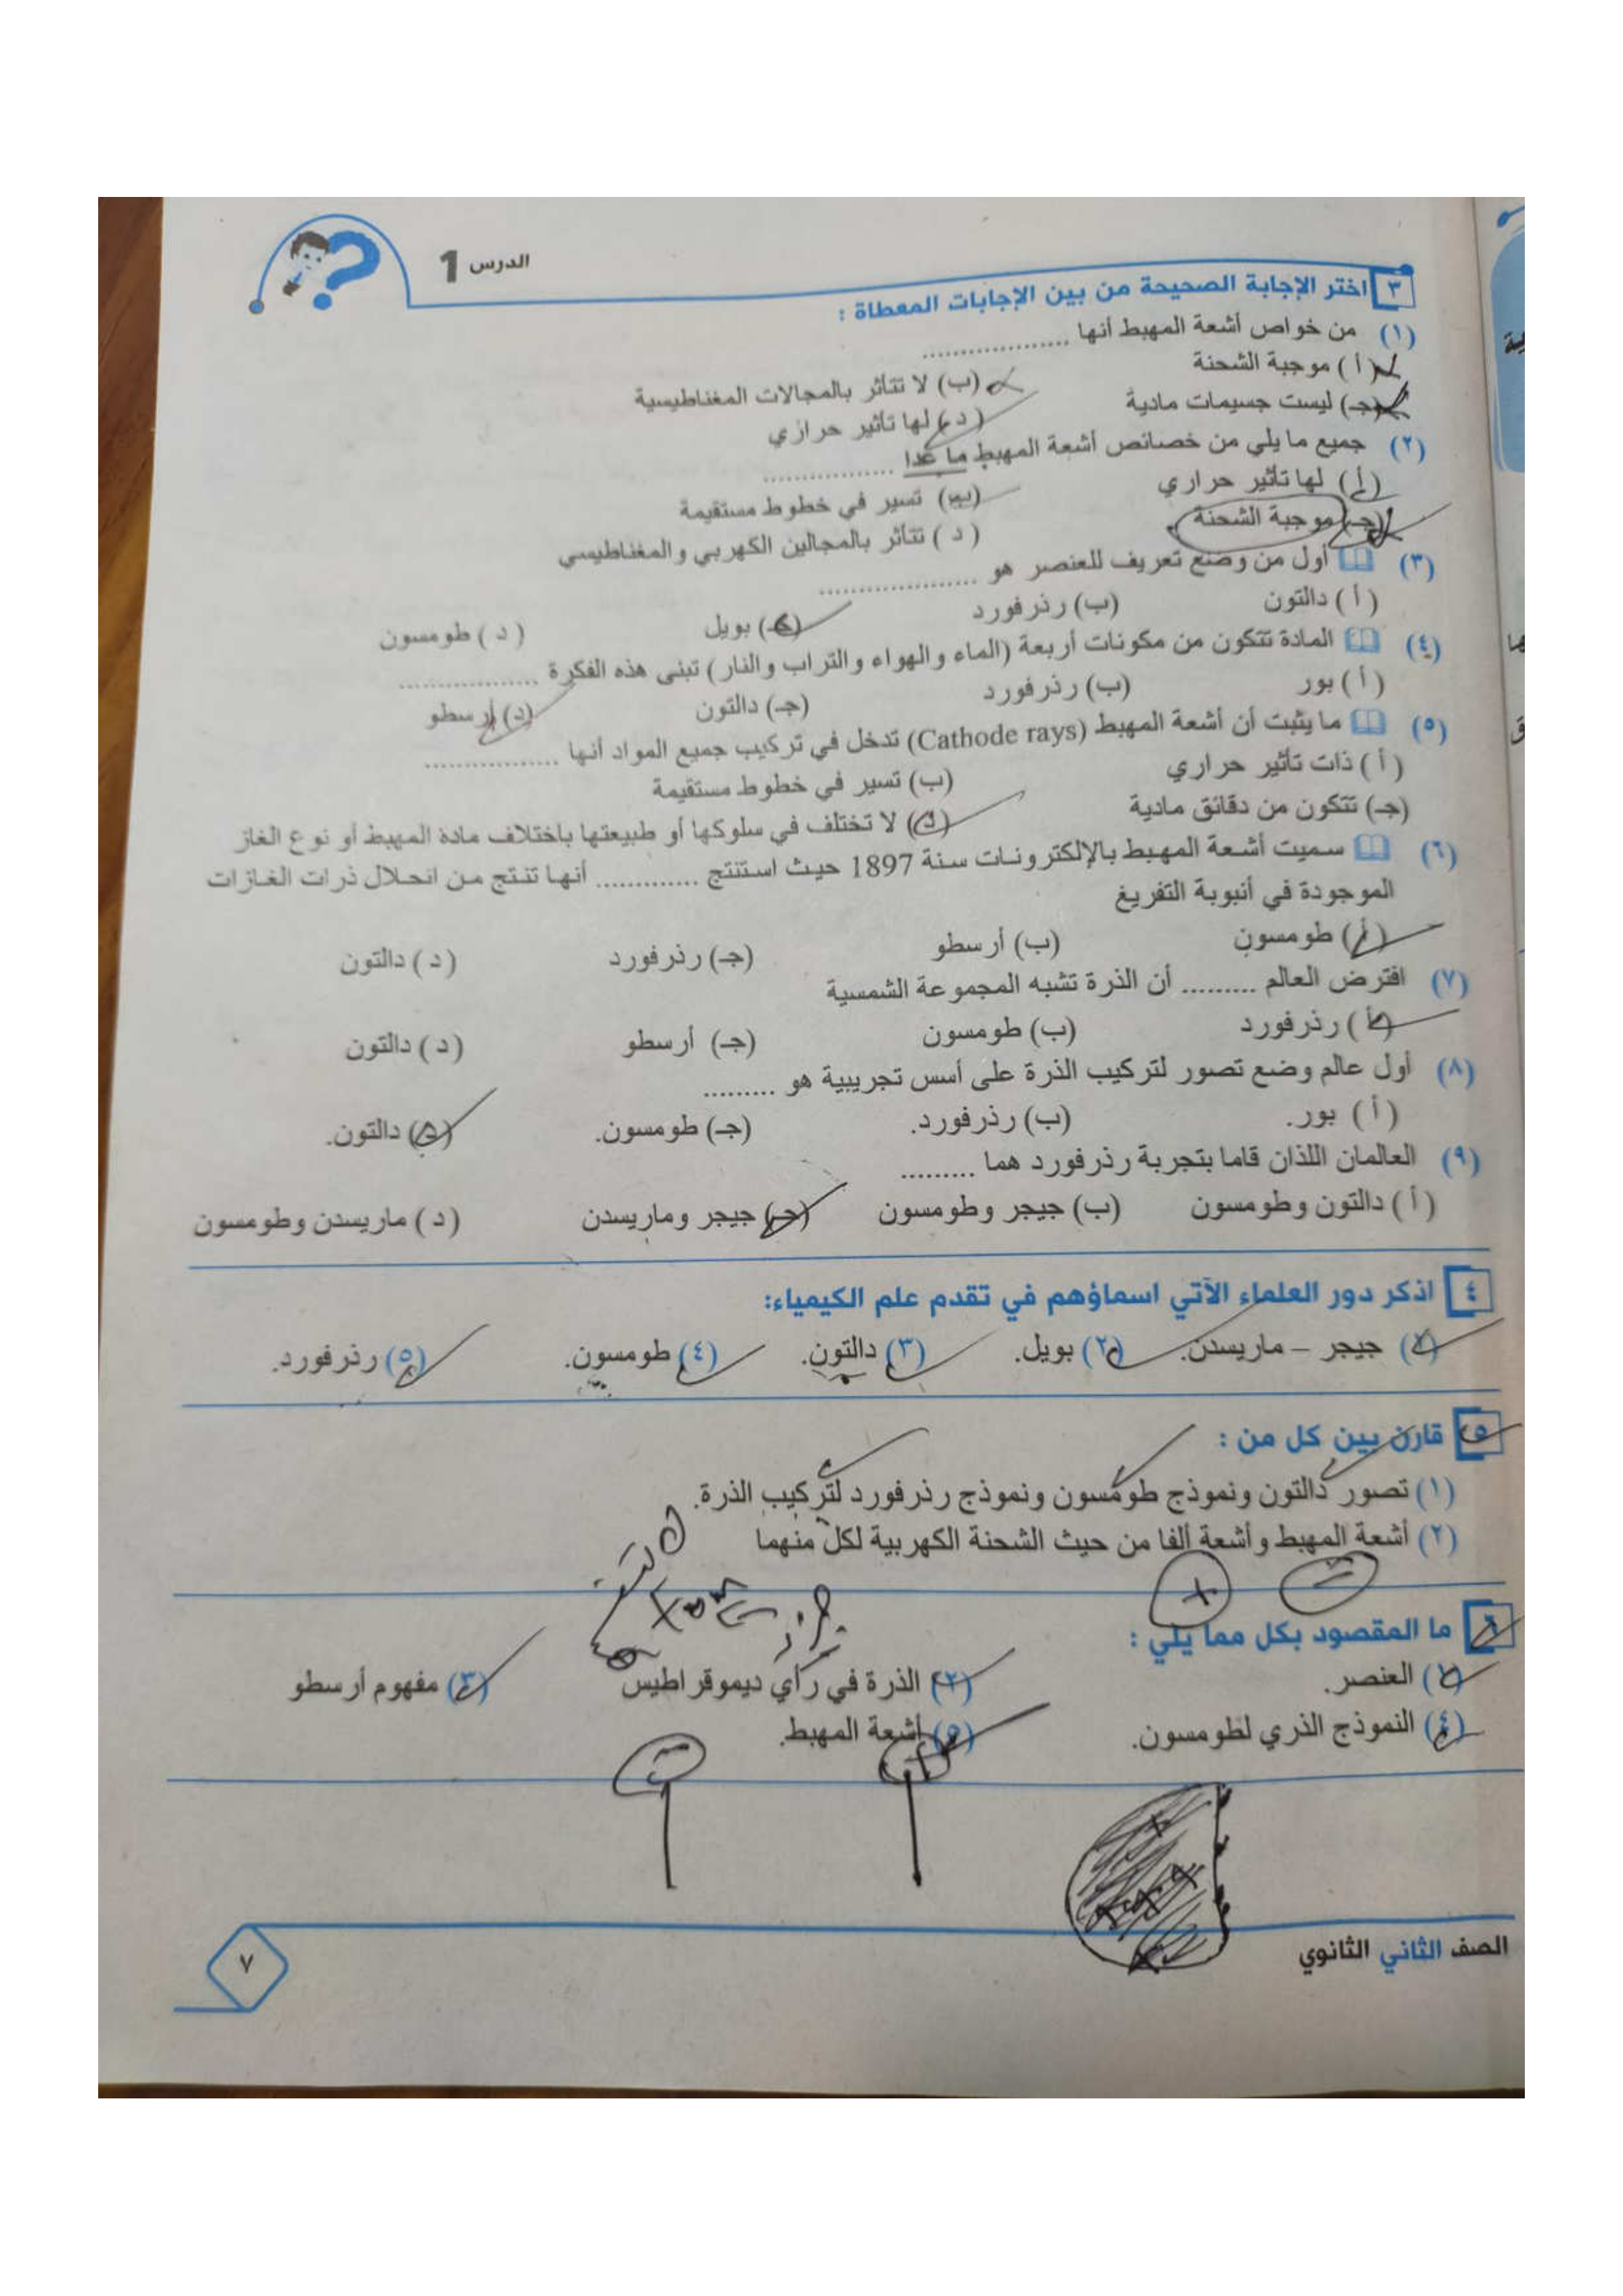 الدرس 1
٣ اختر الإجابة الصحيحة من بين الإجابات المعطاة :
(١) من خواص أشعة المهبط أنها ....................
(أ) موجبة الشحنة (ب) لا تتأثر بالمجالات المغناطيسية
(جـ) ليست جسيمات مادية (د) لها تأثير حراري
(٢) جميع ما يلي من خصائص أشعة المهبط ما عدا ..................
(أ) لها تأثير حراري (ب) تسير في خطوط مستقيمة
(جـ) موجبة الشحنة (د) تتأثر بالمجالين الكهربي والمغناطيسي
(٣) أول من وضع تعريف للعنصر هو ......................
(أ) دالتون (ب) رذرفورد (جـ) بويل (د) طومسون
(٤) المادة تتكون من مكونات أربعة (الماء والهواء والتراب والنار) تبنى هذه الفكرة ...................
(أ) بور (ب) رذرفورد (جـ) دالتون (د) أرسطو
(٥) ما يثبت أن أشعة المهبط (Cathode rays) تدخل في تركيب جميع المواد أنها ..................
(أ) ذات تأثير حراري (ب) تسير في خطوط مستقيمة
(جـ) تتكون من دقائق مادية (د) لا تختلف في سلوكها أو طبيعتها باختلاف مادة المهبط أو نوع الغاز
(٦) سميت أشعة المهبط بالإلكترونات سنة 1897 حيث استنتج ............. أنها تنتج من انحلال ذرات الغازات
الموجودة في أنبوبة التفريغ
(أ) طومسون (ب) أرسطو (جـ) رذرفورد (د) دالتون
(٧) افترض العالم ......... أن الذرة تشبه المجموعة الشمسية
(أ) رذرفورد (ب) طومسون (جـ) أرسطو (د) دالتون
(٨) أول عالم وضع تصور لتركيب الذرة على أسس تجريبية هو .........
(أ) بور. (ب) رذرفورد. (جـ) طومسون. (د) دالتون.
(٩) العالمان اللذان قاما بتجربة رذرفورد هما .........
(أ) دالتون وطومسون (ب) جيجر وطومسون (جـ) جيجر وماريسدن (د) ماريسدن وطومسون
٤ اذكر دور العلماء الآتي اسماؤهم في تقدم علم الكيمياء:
(١) جيجر – ماريسدن. (٢) بويل. (٣) دالتون. (٤) طومسون. (٥) رذرفورد.
٥ قارن بين كل من :
(١) تصور دالتون ونموذج طومسون ونموذج رذرفورد لتركيب الذرة.
(٢) أشعة المهبط وأشعة ألفا من حيث الشحنة الكهربية لكل منهما
٦ ما المقصود بكل مما يلي :
(١) العنصر. (٢) الذرة في رأي ديموقراطيس (٣) مفهوم أرسطو
(٤) النموذج الذري لطومسون. (٥) أشعة المهبط.
الصف الثاني الثانوي
٧